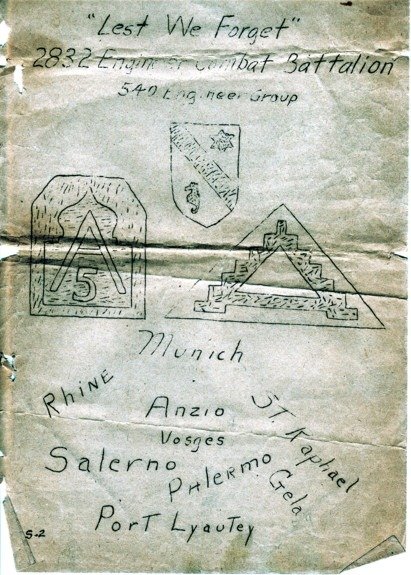 "Lest We Forget"
2832 Engineer Combat Battalion
540 Engineer Group
5
Munich
RHINE
ST. Raphael
Anzio
Vosges
Salerno
PALERMO
Gela
PORT LyAUTEy
S-2